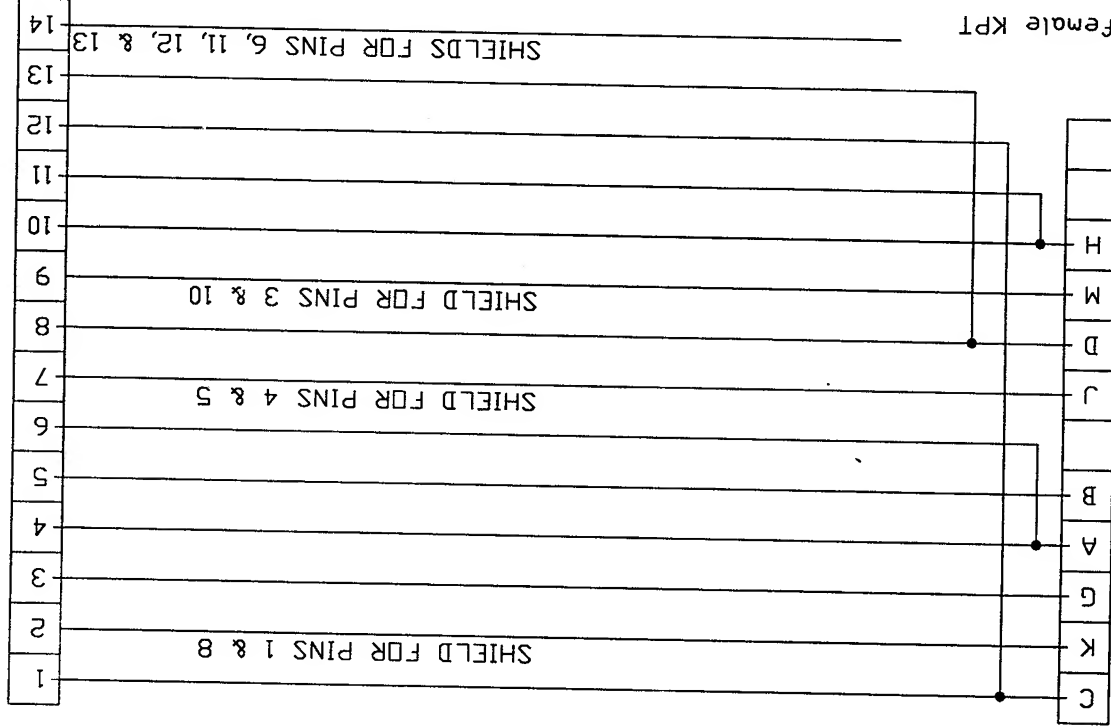 C 1
SHIELD FOR PINS 1 & 8
K 2
G 3
A 4
B 5
6
SHIELD FOR PINS 4 & 5
J 7
D 8
SHIELD FOR PINS 3 & 10
M 9
H 10
11
12
13
SHIELDS FOR PINS 6, 11, 12, & 13
14
female KPT